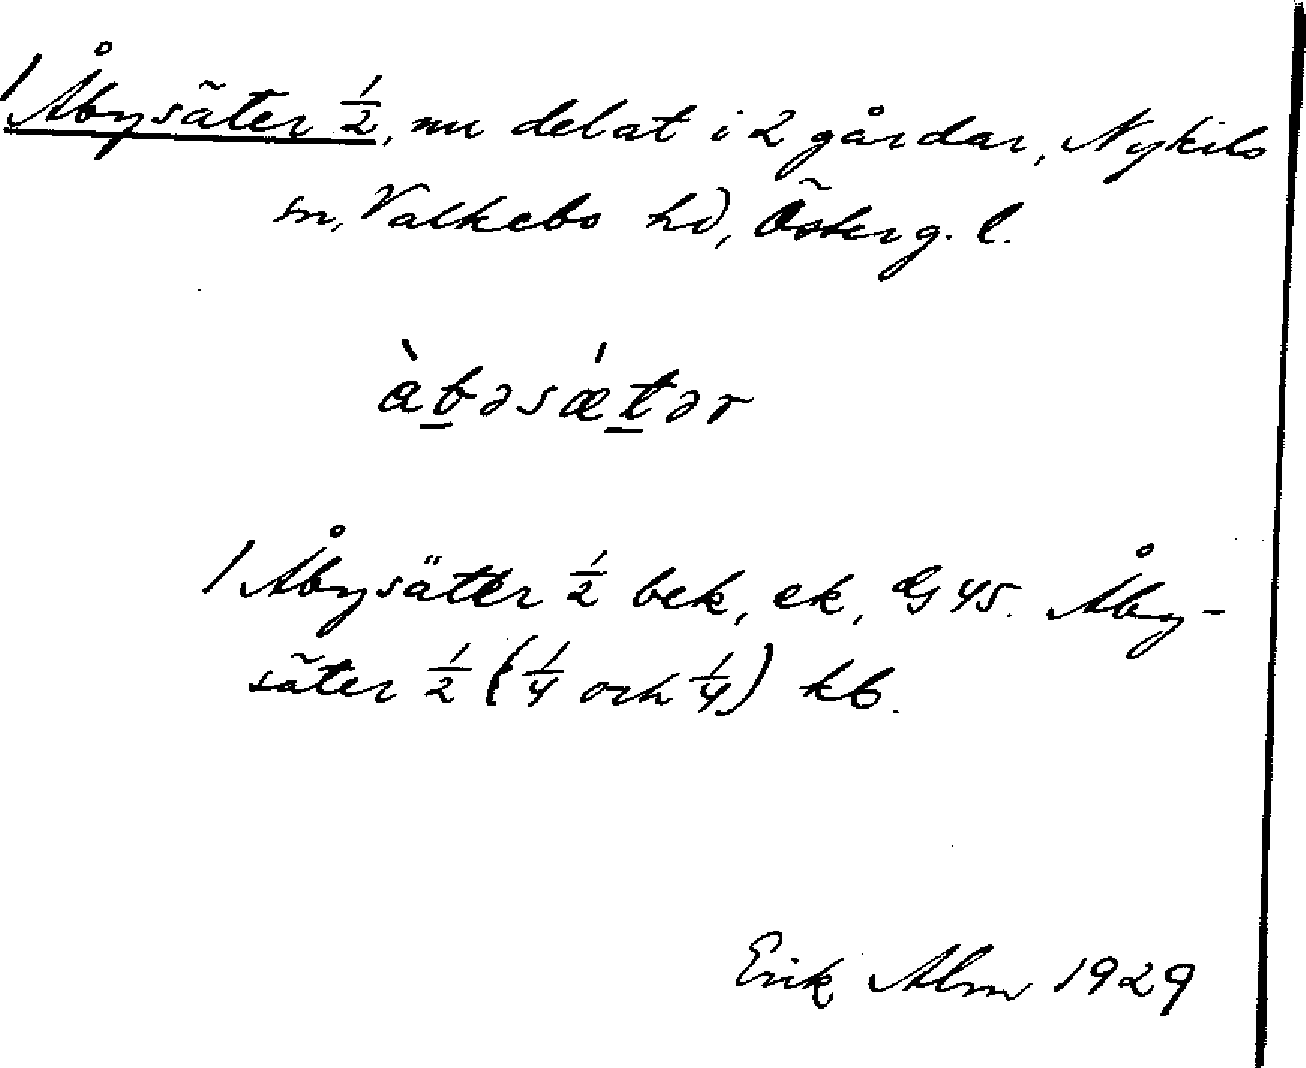 1 Åbysäter ½, nu delat i 2 gårdar, Nykils
sn, Valkebo hd, Österg. l.
àb̲əsǽt̲ər
1 Åbysätter ½ bek, ek, G 45. Åby-
säter ½ (¼ och ¼) kb.
Erik Alm 1929